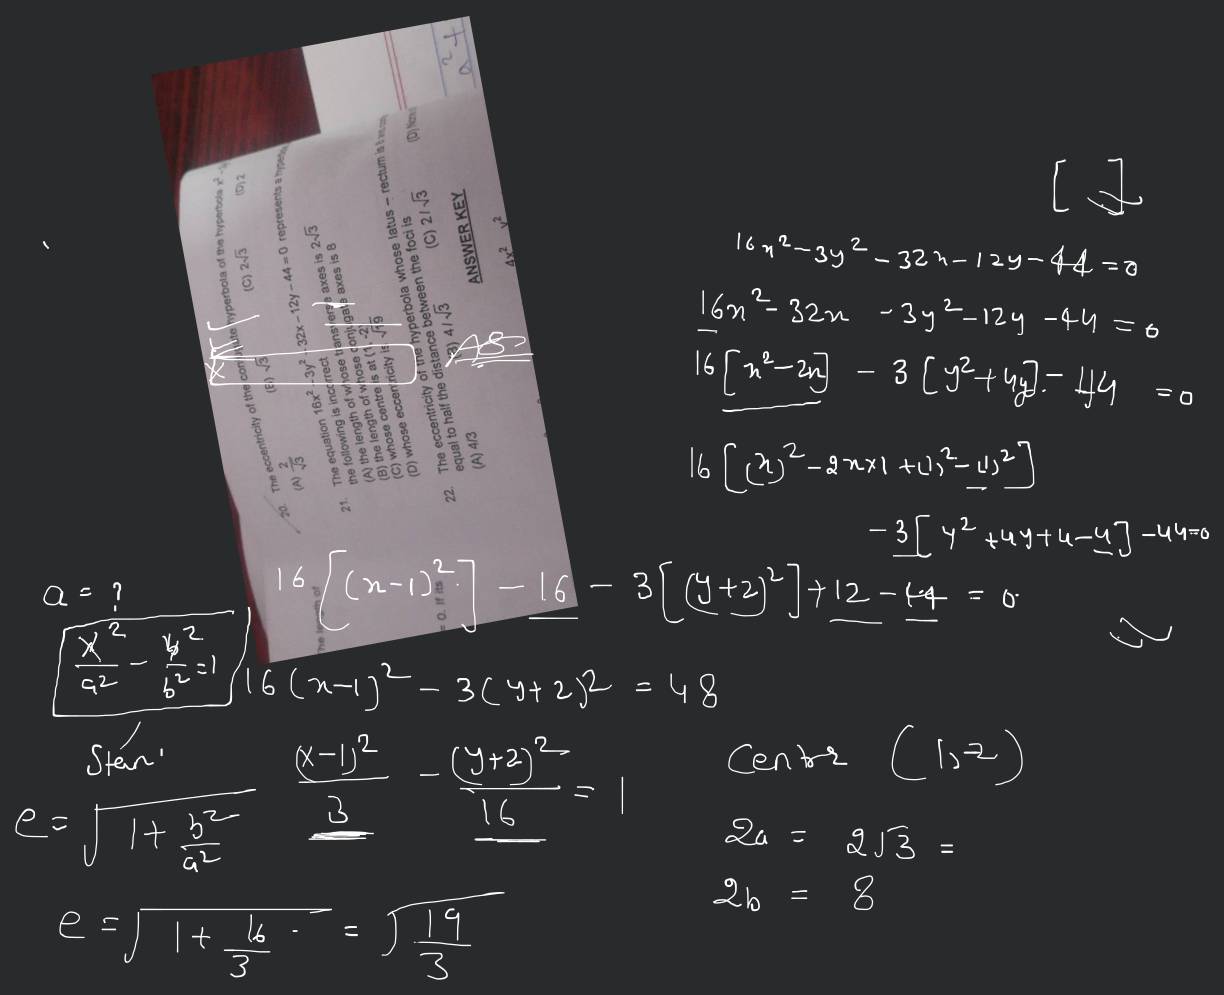 a² +
20. The eccentricity of the conjugate hyperbola of the hyperbola x² - 3y
(A) 2/√3 (B) √3 (C) 2√3 (D) 2
21. The equation 16x² - 3y² - 32x – 12y – 44 = 0 represents a hyperb
the following is incorrect
(A) the length of whose transverse axes is 2√3
(B) the length of whose conjugate axes is 8
(C) whose centre is at (1, -2)
(D) whose eccentricity is √19
22. The eccentricity of the hyperbola whose latus – rectum is 8
equal to half the distance between the foci is
(A) 4/3 (B) 4/√3 (C) 2/√3 (D) None
ANSWER KEY
4x² y²
= 0. If its
[ ]
16x² – 3y² – 32x – 12y – 44 = 0
16x² – 32x – 3y² – 12y – 44 = 0
16[x² – 2x] – 3[y² + 4y] – 44 = 0
16[(x)² – 2x×1 + (1)² – (1)²]
– 3[y² + 4y + 4 – 4] – 44 = 0
16[(x–1)²] – 16 – 3[(y+2)²] + 12 – 44 = 0
16(x–1)² – 3(y+2)² = 48
(x–1)²/3 – (y+2)²/16 = 1
a = ?
x²/a² – y²/b² = 1
e = √(1 + b²/a²)
e = √(1 + 16/3) = √(19/3)
Centre (1,-2)
2a = 2√3 =
2b = 8